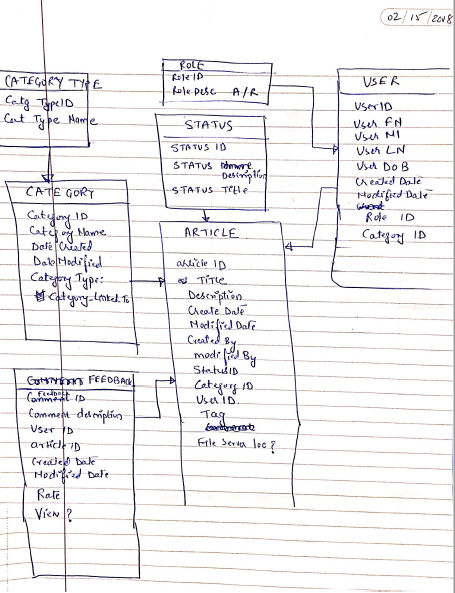 02/15/2018
ROLE
Role ID
Role Desc A/R
CATEGORY TYPE
Catg Type ID
Cat Type Name
USER
User ID
User FN
User MI
User LN
User DOB
Created Date
Modified Date
Role ID
Category ID
STATUS
STATUS ID
STATUS Description
STATUS Title
CATEGORY
Category ID
Category Name
Date Created
Date Modified
Category Type:
Category-Linked To
ARTICLE
article ID
TITLE
Description
Create Date
Modified Date
Created By
modified By
Status ID
Category ID
User ID.
Tag
File Server loc?
FEEDBACK
Feedback ID
Comment description
User ID
article ID
Created Date
Modified Date
Rate
View?